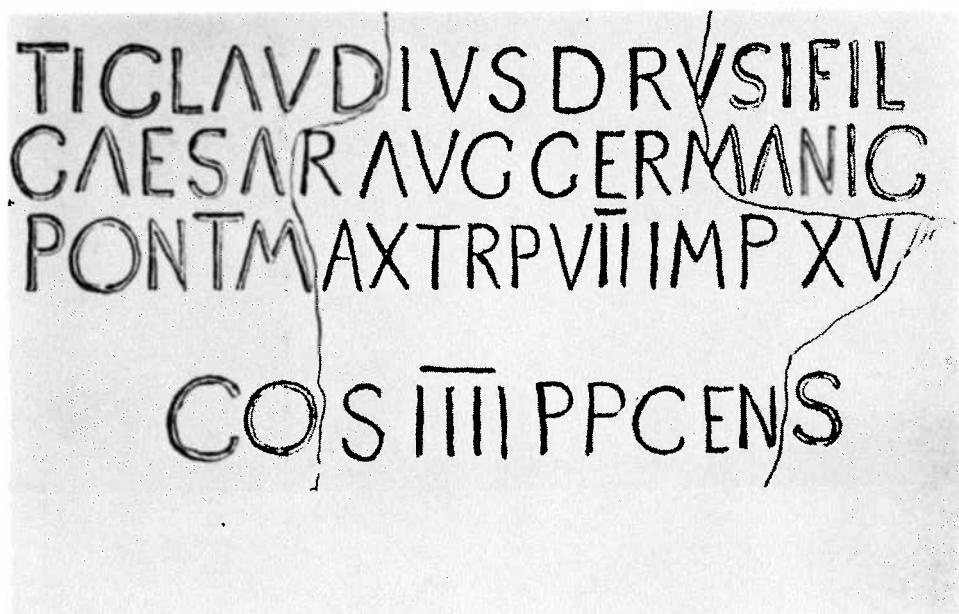 TICLAVDIVSDRVSIFIL
CAESARAVGGERMANIC
PONTMAXTRPVIIIMPXV
COSIIIIPPCENS